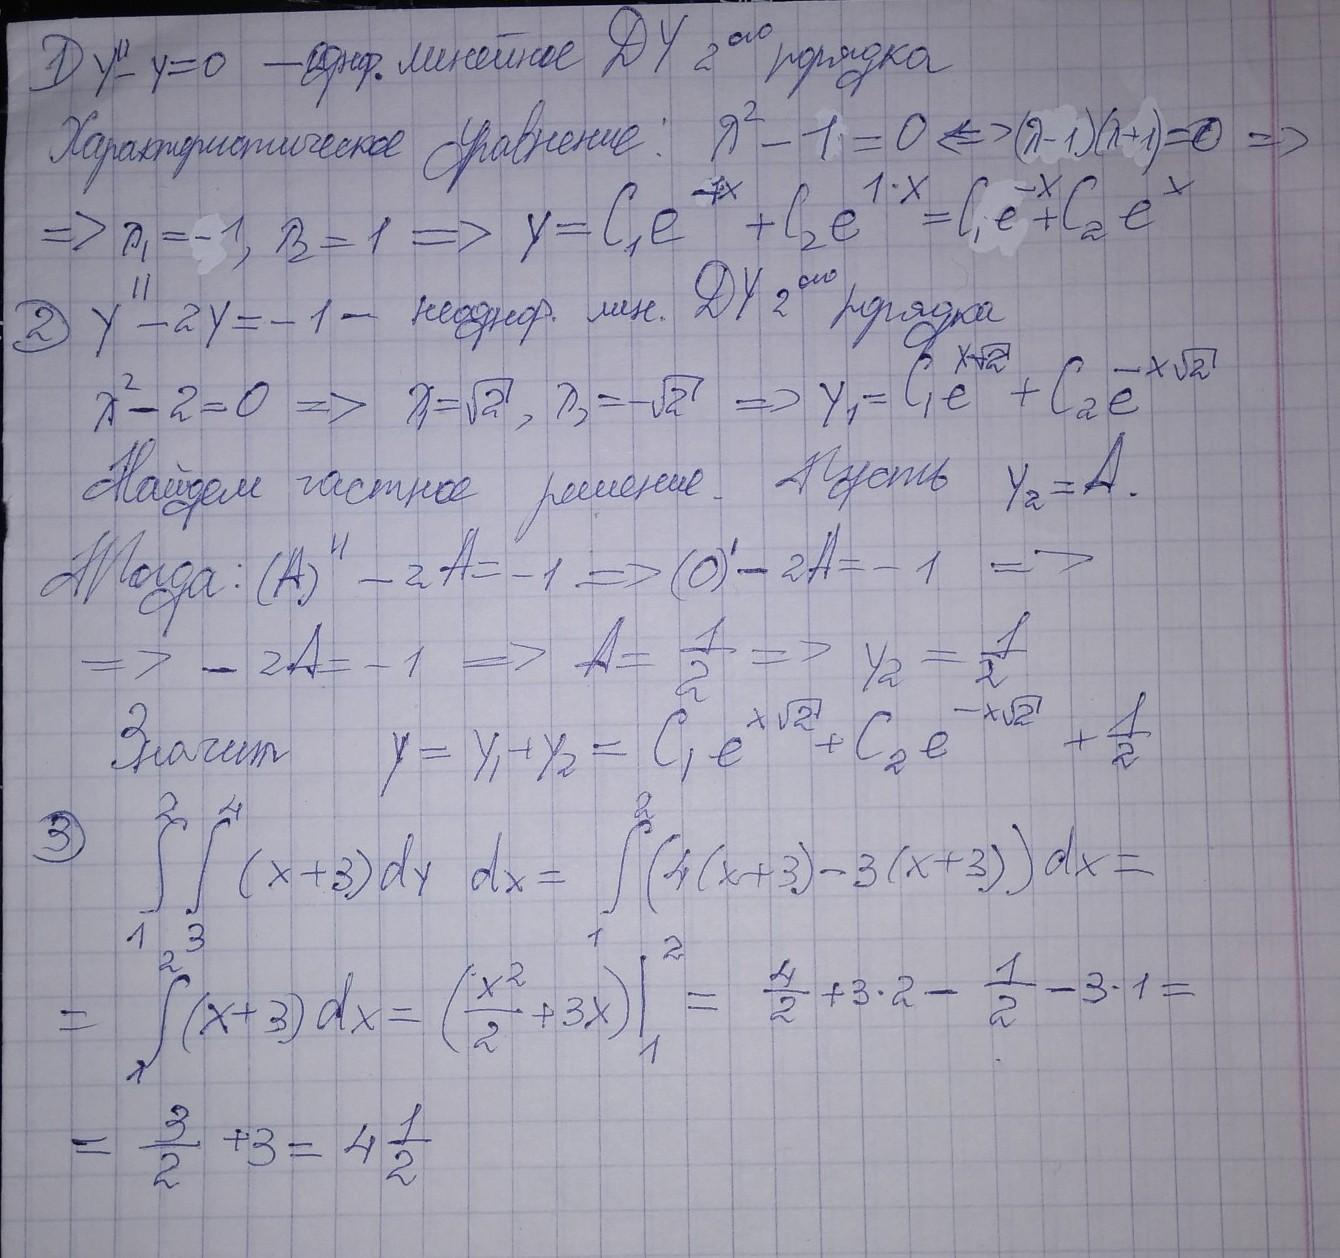 1) y'' - y = 0 — однор. линейное ДУ 2ого порядка
Характеристическое уравнение: λ² - 1 = 0 <=> (λ-1)(λ+1) = 0 =>
=> λ₁ = -1, λ₂ = 1 => y = C₁e^(-1x) + C₂e^(1·x) = C₁e^(-x) + C₂e^x
2) y'' - 2y = -1 — неоднор. лин. ДУ 2ого порядка
λ² - 2 = 0 => λ₁ = √2, λ₂ = -√2 => y₁ = C₁e^(x√2) + C₂e^(-x√2)
Найдем частное решение. Пусть y₂ = A.
Тогда: (A)'' - 2A = -1 => (0)' - 2A = -1 =>
=> - 2A = -1 => A = 1/2 => y₂ = 1/2
Значит y = y₁ + y₂ = C₁e^(x√2) + C₂e^(-x√2) + 1/2
3) ∫₁² ∫₃⁴ (x+3)dy dx = ∫₁² (4(x+3) - 3(x+3)) dx =
= ∫₁² (x+3) dx = (x²/2 + 3x)|₁² = 4/2 + 3·2 - 1/2 - 3·1 =
= 3/2 + 3 = 4 1/2